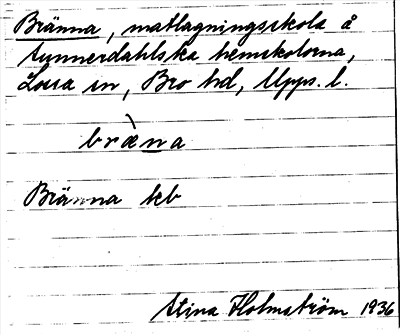 Bränna, matlagningsskola å
Sunnerdahlska hemskolorna,
Lossa sn, Bro hd, Upps. l.
bræ̀na
Bränna kb
Stina Holmström 1936